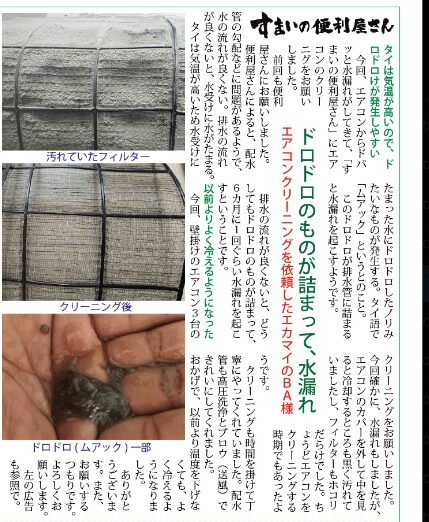 すまいの便利屋さん
タイは気温が高いので、ド
ロドロけが発生しやすい
今回、エアコンからドバ
ッと水漏れがしてきて、「す
まいの便利屋さん」にエア
コンのクリー
ニングをお願い
しました。
前回も便利
屋さんにお願いしました。
便利屋さんによると、配水
管の勾配などに問題があるようで、
水の流れが良くない。排水の流れ
が良くないと、水受けに水がたまる。
タイは気温が高いため水受けに
たまった水にドロドロしたノリみ
たいなものが発生する。タイ語で
「ムアック」というとのこと。
このドロドロが排水管に詰まる
と水漏れを起こすようです。
ドロドロのものが詰まって、水漏れ
エアコンクリーニングを依頼したエカマイのBA様
排水の流れが良くないと、どう
してもドロドロのものが詰まって、
6カ月に1回ぐらい水漏れを起こ
すということです。
以前よりよく冷えるようになった
今回、壁掛けのエアコン3台の
クリーニングをお願いしました。
今回確かに、水漏れもしましたが、
エアコンのカバーを外して中を見
ると冷却するところも黒く汚れて
いましたし、フィルターもホコリ
だらけでした。ち
ょうどエアコンを
クリーニングする
時期でもあったよ
うです。
クリーニングも時間を掛けて丁
寧にやってくれていました。配水
管も高圧洗浄とブロウ(送風)で
きれいにしてくれました。
おかげで、以前より温度を下げな
くても、よ
く冷えるよ
うになりま
した。
ありがと
うございま
す。また、
お願いする
つもりです。
よろしくお
願いします。
左の広告
も参照で。
汚れていたフィルター
クリーニング後
ドロドロ(ムアック)一部